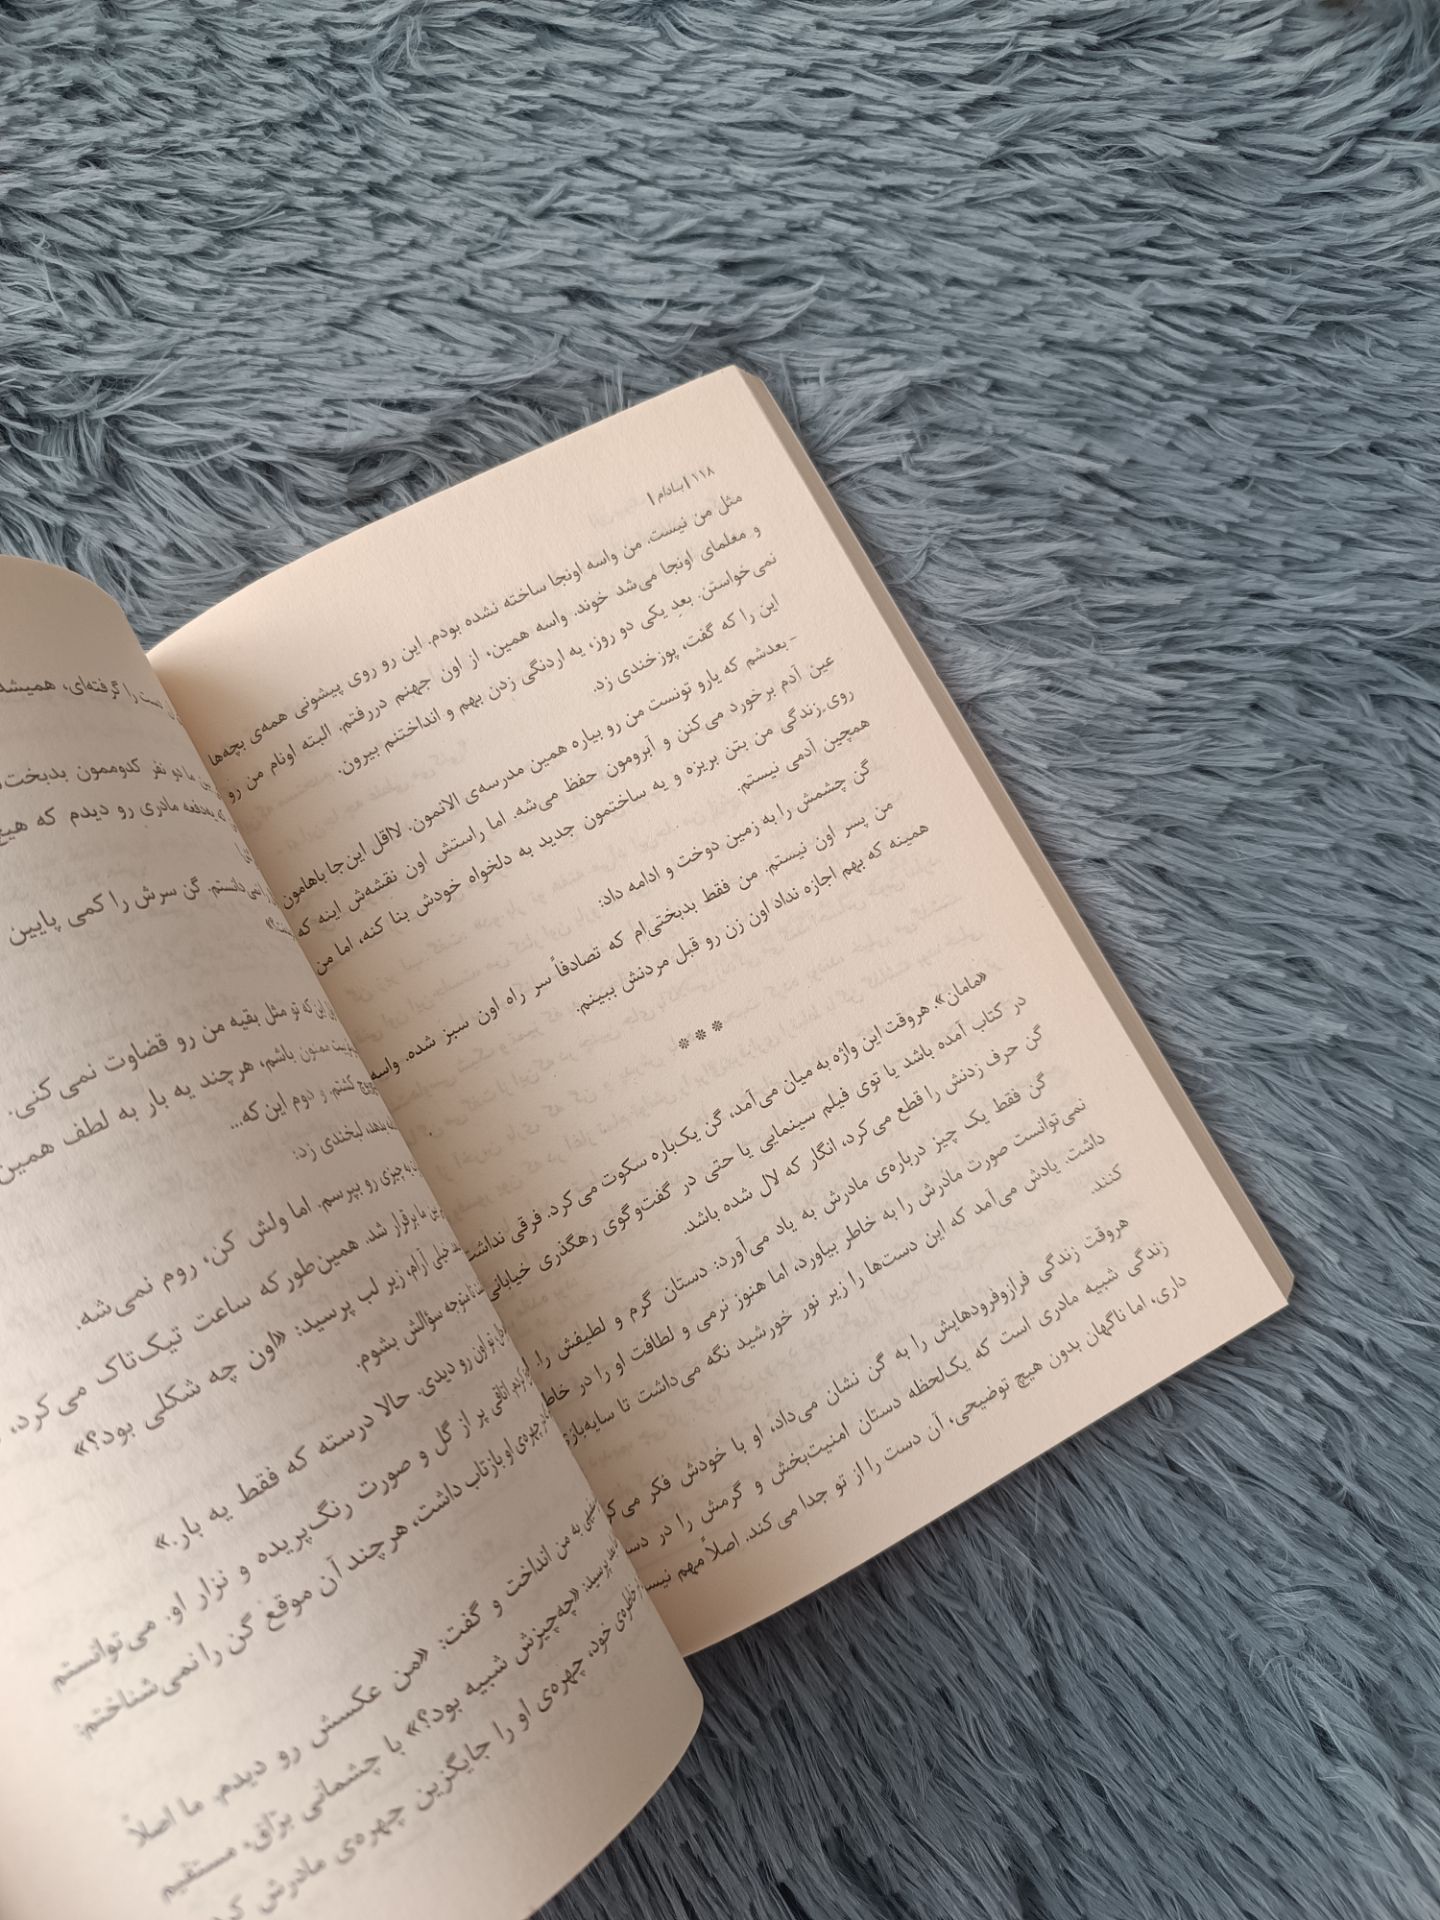 ۱۱۸ | بادام |
مثل من نیست. من واسه اونجا ساخته نشده بودم. این رو روی پیشونی همه‌ی بچه‌ها
و معلمای اونجا می‌شد خوند. واسه همین، از اون جهنم دررفتم. البته اونام من رو
نمی‌خواستن. بعدِ یکی دو روز، یه اردنگی زدن بهم و انداختنم بیرون.
این را که گفت، پوزخندی زد.
- بعدشم که یارو تونست من رو بیاره همین مدرسه‌ی الانمون. لااقل این‌جا باهامون
عین آدم برخورد می‌کنن و آبرومون حفظ می‌شه. اما راستش اون نقشه‌ش اینه که
روی زندگی من بتن بریزه و یه ساختمون جدید به دلخواه خودش بنا کنه، اما من
همچین آدمی نیستم.
گن چشمش را به زمین دوخت و ادامه داد:
من پسر اون نیستم. من فقط بدبختی‌ام که تصادفاً سر راه اون سبز شده. واسه
همینه که بهم اجازه نداد اون زن رو قبل مردنش ببینم.
***
«مامان». هروقت این واژه به میان می‌آمد، گن یک‌باره سکوت می‌کرد. فرقی نداشت
در کتاب آمده باشد یا توی فیلم سینمایی یا حتی در گفت‌وگوی رهگذری خیابانی
گن حرف زدنش را قطع می‌کرد، انگار که لال شده باشد.
گن فقط یک چیز درباره‌ی مادرش به یاد می‌آورد: دستان گرم و لطیفش را.
نمی‌توانست صورت مادرش را به خاطر بیاورد، اما هنوز نرمی و لطافت او را در خاطر
داشت. یادش می‌آمد که این دست‌ها را زیر نور خورشید نگه می‌داشت تا سایه‌بازی
کنند.
هروقت زندگی فرازوفرودهایش را به گن نشان می‌داد، او با خودش فکر
زندگی شبیه مادری است که یک‌لحظه دستان امنیت‌بخش و گرمش را در
داری، اما ناگهان بدون هیچ توضیحی، آن دست را از تو جدا می‌کند. اصلاً مهم
را گرفته‌ای، همیشه
ما دو نفر کدوممون بدبخت
یه‌دفعه مادری رو دیدم که
گن سرش را کمی پایین
این که تو مثل بقیه من رو قضاوت نمی‌کنی.
ممنون باشم، هرچند یه بار به لطف همین
کشتم. و دوم این که...
لبخندی زد:
یه چیزی رو بپرسم. اما ولش کن، روم نمی‌شه.
ما برقرار شد. همین‌طور که ساعت تیک‌تاک می‌کرد،
خیلی آرام، زیر لب پرسید: «اون چه شکلی بود؟»
متوجه سؤالش بشوم.
تو اون رو دیدی. حالا درسته که فقط یه بار.»
اتاقی پر از گل و صورت رنگ‌پریده و نزار او. می‌توانستم
چهره‌ی او بازتاب داشت، هرچند آن موقع گن را نمی‌شناختم.
به من انداخت و گفت: «من عکسش رو دیدم. ما اصلاً
پرسید: «چه‌چیزش شبیه بود؟» با چشمانی براق، مستقیم
خود، چهره‌ی او را جایگزین چهره‌ی مادرش